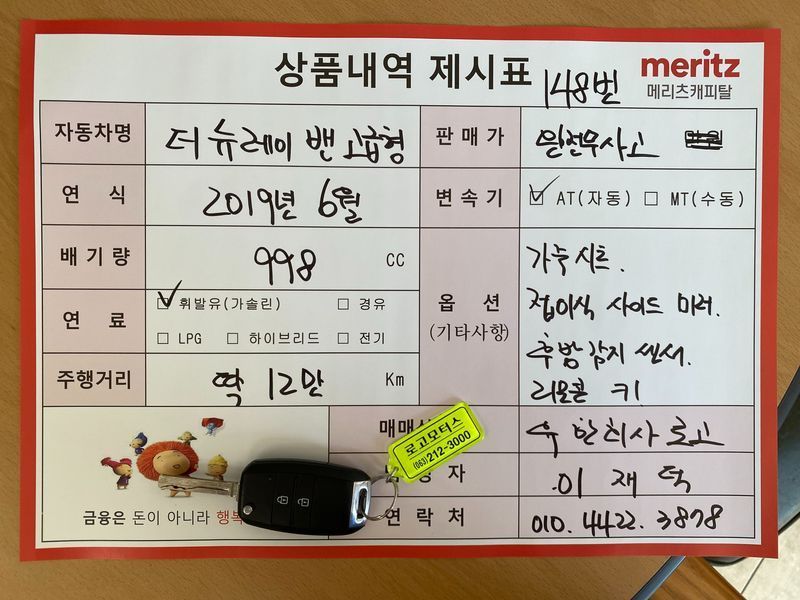 상품내역 제시표
148번
meritz
메리츠캐피탈
자동차명 더 뉴레이 밴 고급형
판매가 완전무사고
연 식 2019년 6월
변속기 AT(자동) MT(수동)
배기량 998 CC
연 료 휘발유(가솔린) 경유
LPG 하이브리드 전기
주행거리 딱 12만 Km
옵 션
(기타사항)
가죽시트.
접이식 사이드 미러.
후방감지 센서.
리모콘 키
매매 유한회사 로고
자 이재덕
연락처 010.4422.3878
로고모터스
(063)212-3000
금융은 돈이 아니라 행복